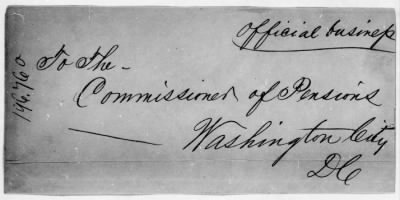 Official business
146.760
To The
Commissioner of Pensions
Washington City
DC